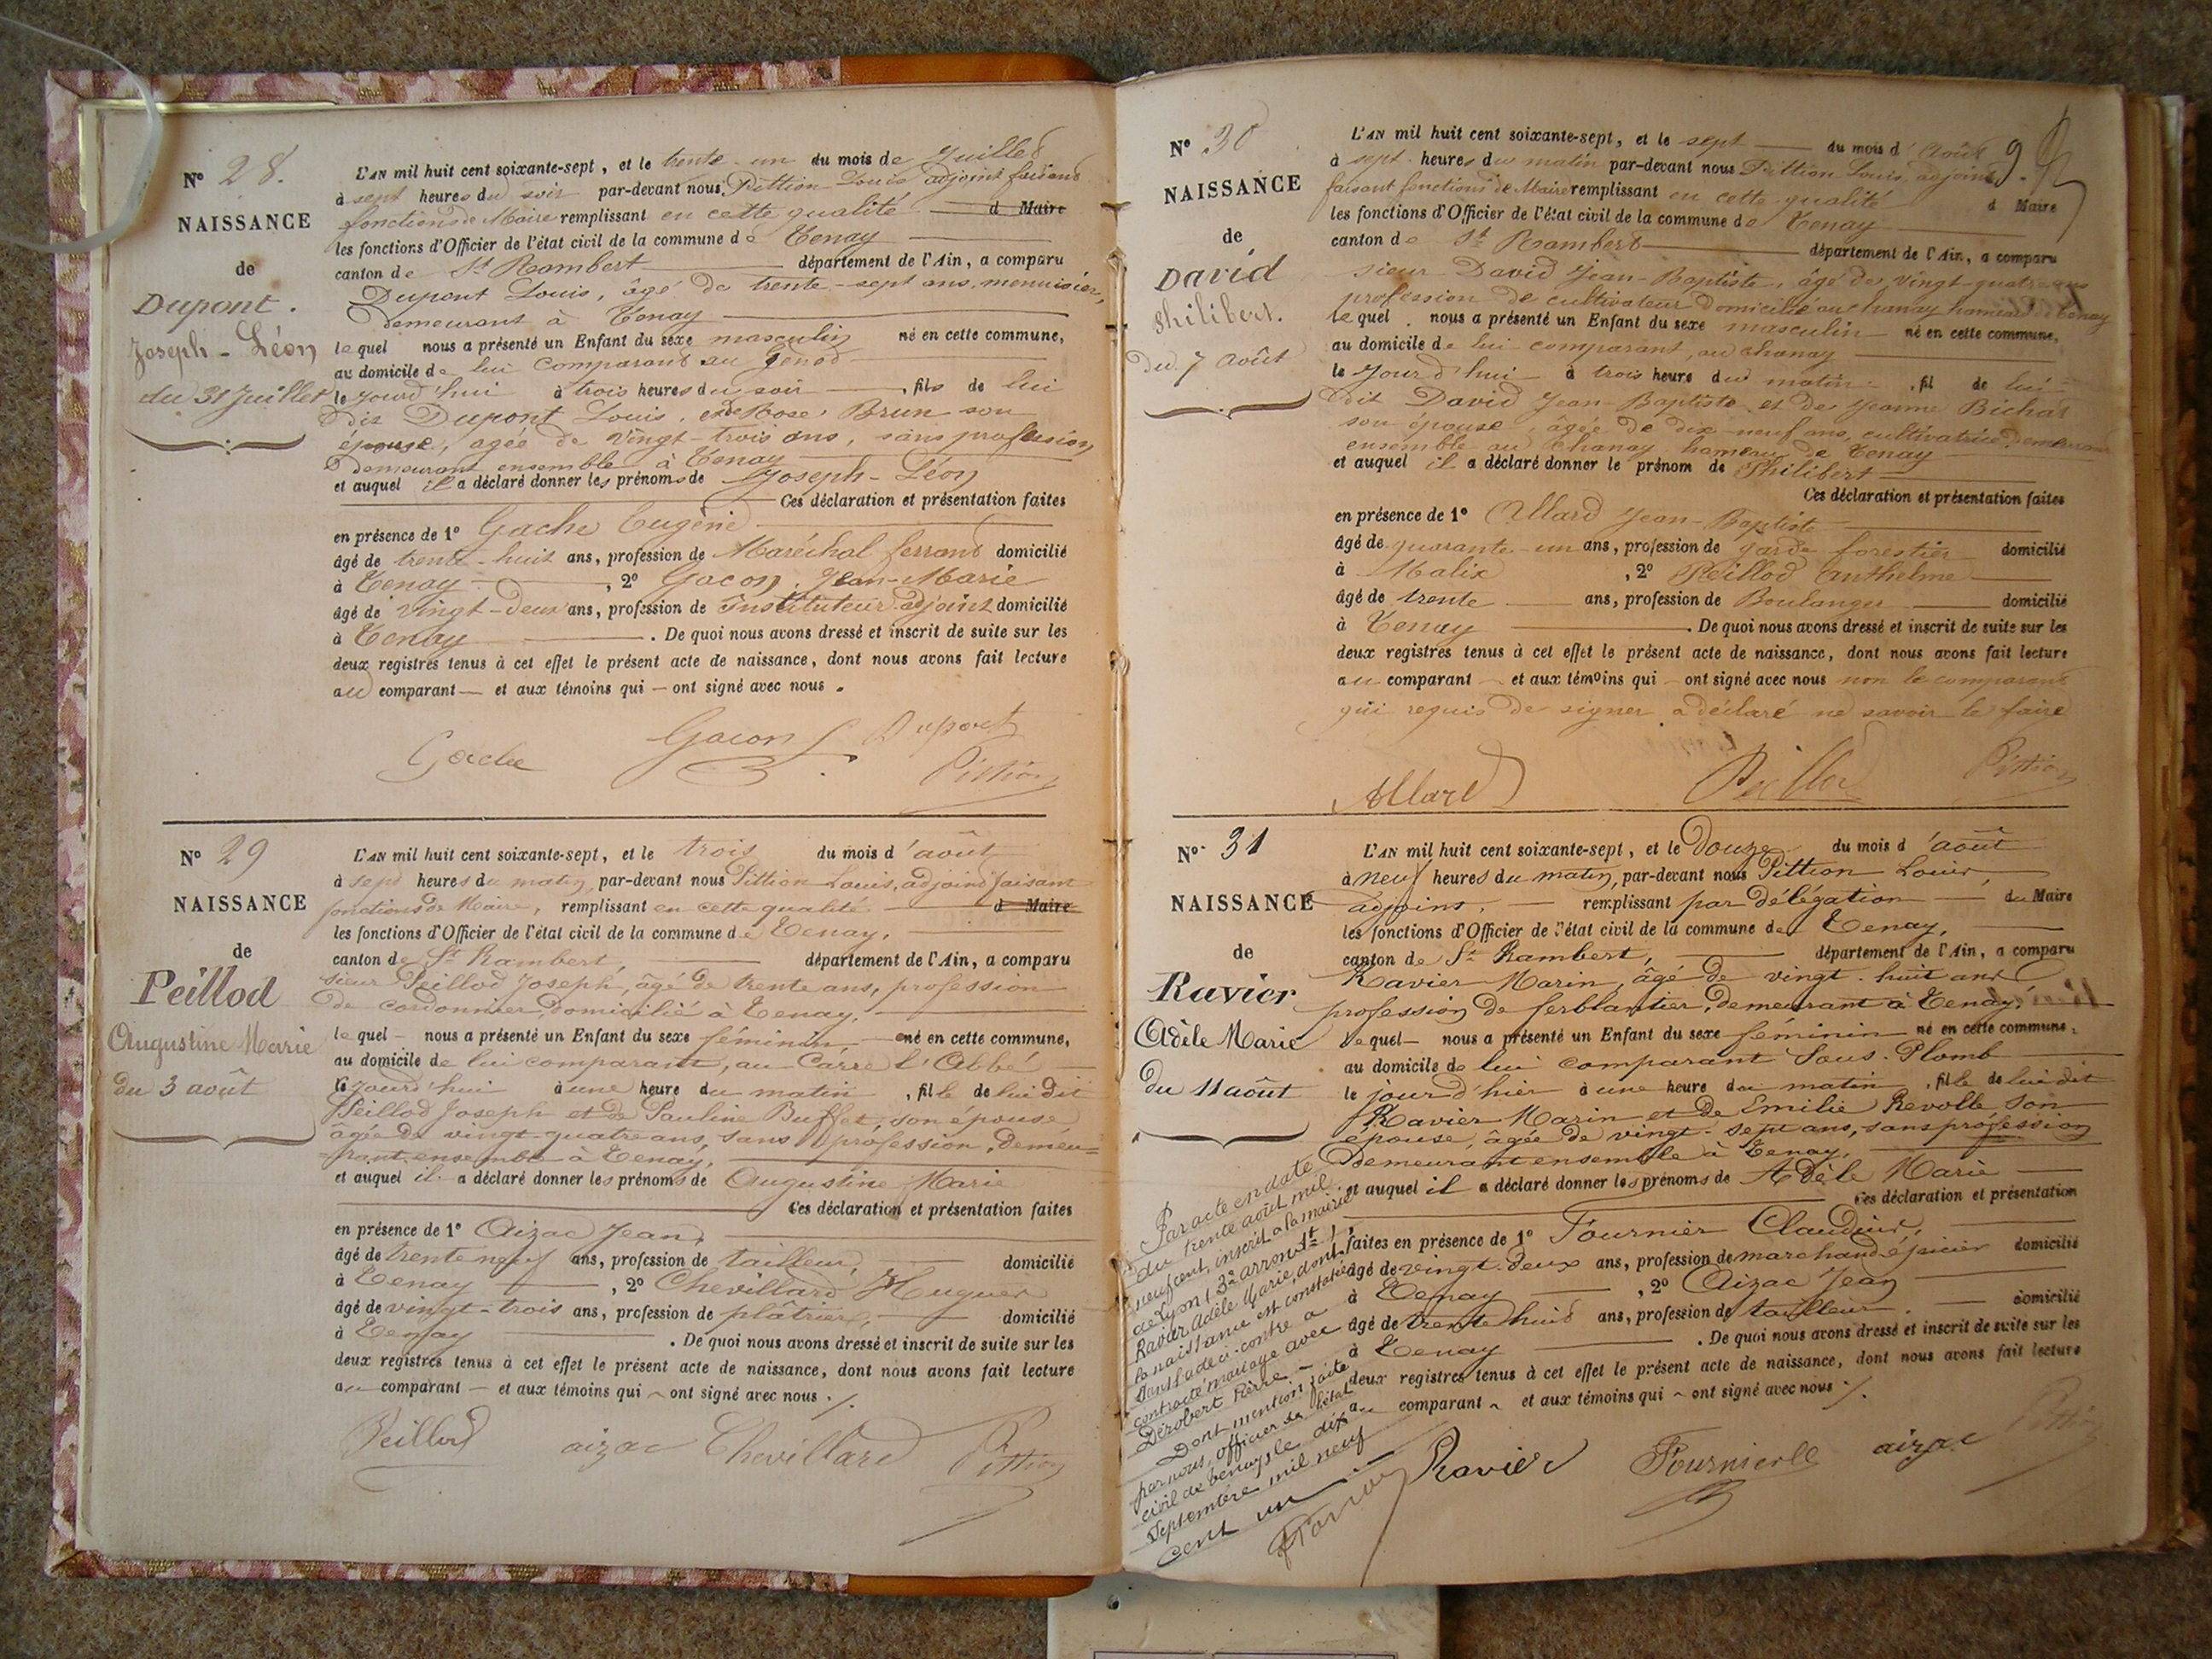 Nº 28.
NAISSANCE
de
Dupont.
Joseph-Léon
du 31 Juillet
L'AN mil huit cent soixante-sept, et le trente-un du mois de Juillet
à sept heures du soir par-devant nous Pittion Louis adjoint faisant
fonctions de Maire remplissant en cette qualité d Maire
les fonctions d'Officier de l'état civil de la commune de Tenay
canton de St Rambert département de l'Ain, a comparu
Dupont Louis, âgé de trente-sept ans, menuisier,
demeurant à Tenay
lequel nous a présenté un Enfant du sexe masculin né en cette commune,
au domicile de lui comparant au
le jourd'hui à trois heures du soir, fils de lui
dit Dupont Louis, et de Rose Brun son
épouse, agée de vingt-trois ans, sans profession
demeurant ensemble à Tenay
et auquel il a déclaré donner les prénoms de Joseph-Léon
Ces déclaration et présentation faites
en présence de 1º Gache Eugène
âgé de trente-huit ans, profession de Maréchal ferrant domicilié
à Tenay, 2º Gacon Jean-Marie
âgé de vingt-deux ans, profession de instituteur adjoint domicilié
à Tenay. De quoi nous avons dressé et inscrit de suite sur les
deux registres tenus à cet effet le présent acte de naissance, dont nous avons fait lecture
au comparant et aux témoins qui ont signé avec nous.
Gache Gacon Dupont
Pittion
Nº 29
NAISSANCE
de
Peillod
Augustine Marie
du 3 août
L'AN mil huit cent soixante-sept, et le trois du mois d'août
à sept heures du matin, par-devant nous Pittion Louis, adjoint faisant
fonctions de Maire, remplissant en cette qualité d Maire
les fonctions d'Officier de l'état civil de la commune de Tenay,
canton de St Rambert, département de l'Ain, a comparu
sieur Peillod Joseph, âgé de trente ans, profession
de cordonnier, domicilié à Tenay,
lequel nous a présenté un Enfant du sexe féminin né en cette commune,
au domicile de lui comparant, au Carré l'Abbé
le jourd'hui à une heure du matin, fille de lui dit
Peillod Joseph et de Pauline Buffet, son épouse
âgée de vingt-quatre ans, sans profession, demeu=
=rant ensemble à Tenay,
et auquel il a déclaré donner les prénoms de Augustine Marie
Ces déclaration et présentation faites
en présence de 1º Aizac Jean,
âgé de trente neuf ans, profession de tailleur, domicilié
à Tenay, 2º Chevillard Hugues
âgé de vingt-trois ans, profession de plâtrier, domicilié
à Tenay. De quoi nous avons dressé et inscrit de suite sur les
deux registres tenus à cet effet le présent acte de naissance, dont nous avons fait lecture
au comparant et aux témoins qui ont signé avec nous./.
Peillod aizac Chevillard Pittion
Nº 30
NAISSANCE
de
David
Philibert.
du 7 août
9.
L'AN mil huit cent soixante-sept, et le sept du mois d'Août
à sept heures du matin par-devant nous Pittion Louis, adjoint
faisant fonctions de Maire remplissant en cette qualité d Maire
les fonctions d'Officier de l'état civil de la commune de Tenay
canton de St Rambert département de l'Ain, a comparu
sieur David Jean-Baptiste, âgé de vingt-quatre ans
profession de cultivateur domicilié au chanay hameau de Tenay
lequel nous a présenté un Enfant du sexe masculin né en cette commune,
au domicile de lui comparant, au chanay
le jourd'hui à trois heure du matin, fil de lui
dit David Jean-Baptiste et de Jeanne Bichat
son épouse, âgée de dix-neuf ans, cultivatrice demeurant
ensemble au Chanay hameau de Tenay
et auquel il a déclaré donner le prénom de Philibert
Ces déclaration et présentation faites
en présence de 1º Allard Jean-Baptiste
âgé de quarante-un ans, profession de garde forestier domicilié
à Malix, 2º Peillod Anthelme
âgé de trente ans, profession de Boulanger domicilié
à Tenay. De quoi nous avons dressé et inscrit de suite sur les
deux registres tenus à cet effet le présent acte de naissance, dont nous avons fait lecture
au comparant et aux témoins qui ont signé avec nous non le comparant
qui requis de signer a déclaré ne savoir le faire
Allard Peillod Pittion
Nº 31
NAISSANCE
de
Ravier
Adèle Marie
du 11 août
L'AN mil huit cent soixante-sept, et le Douze du mois d'août
à neuf heures du matin, par-devant nous Pittion Louis,
adjoint, remplissant par délégation du Maire
les fonctions d'Officier de l'état civil de la commune de Tenay,
canton de St Rambert, département de l'Ain, a comparu
Ravier Marin, âgé de vingt-huit ans
profession de ferblantier, demeurant à Tenay,
lequel nous a présenté un Enfant du sexe féminin né en cette commune,
au domicile de lui comparant Sous-Plomb
le jour d'hier à une heure du matin, fille de lui dit
Ravier Marin et de Emilie Revolle son
épouse, âgée de vingt-sept ans, sans profession
demeurant ensemble à Tenay,
et auquel il a déclaré donner les prénoms de Adèle Marie
Ces déclaration et présentation
faites en présence de 1º Fournier Claudius,
âgé de vingt-deux ans, profession de marchand épicier domicilié
à Tenay, 2º Aizac Jean
âgé de trente huit ans, profession de tailleur. domicilié
à Tenay. De quoi nous avons dressé et inscrit de suite sur les
deux registres tenus à cet effet le présent acte de naissance, dont nous avons fait lecture
au comparant et aux témoins qui ont signé avec nous./.
Ravier Fournier aizac Pittion
Par acte en date
du trente août mil
neuf cent un, inscrit à la mairie
de Lyon (3e arrondt),
Ravier Adèle Marie, dont
la naissance est constatée
dans l'acte ci-contre a
contracté mariage avec
Dérobert Pierre.
Dont mention faite
par nous, officier de l'état
civil de Tenay, le dix
Septembre mil neuf
cent un